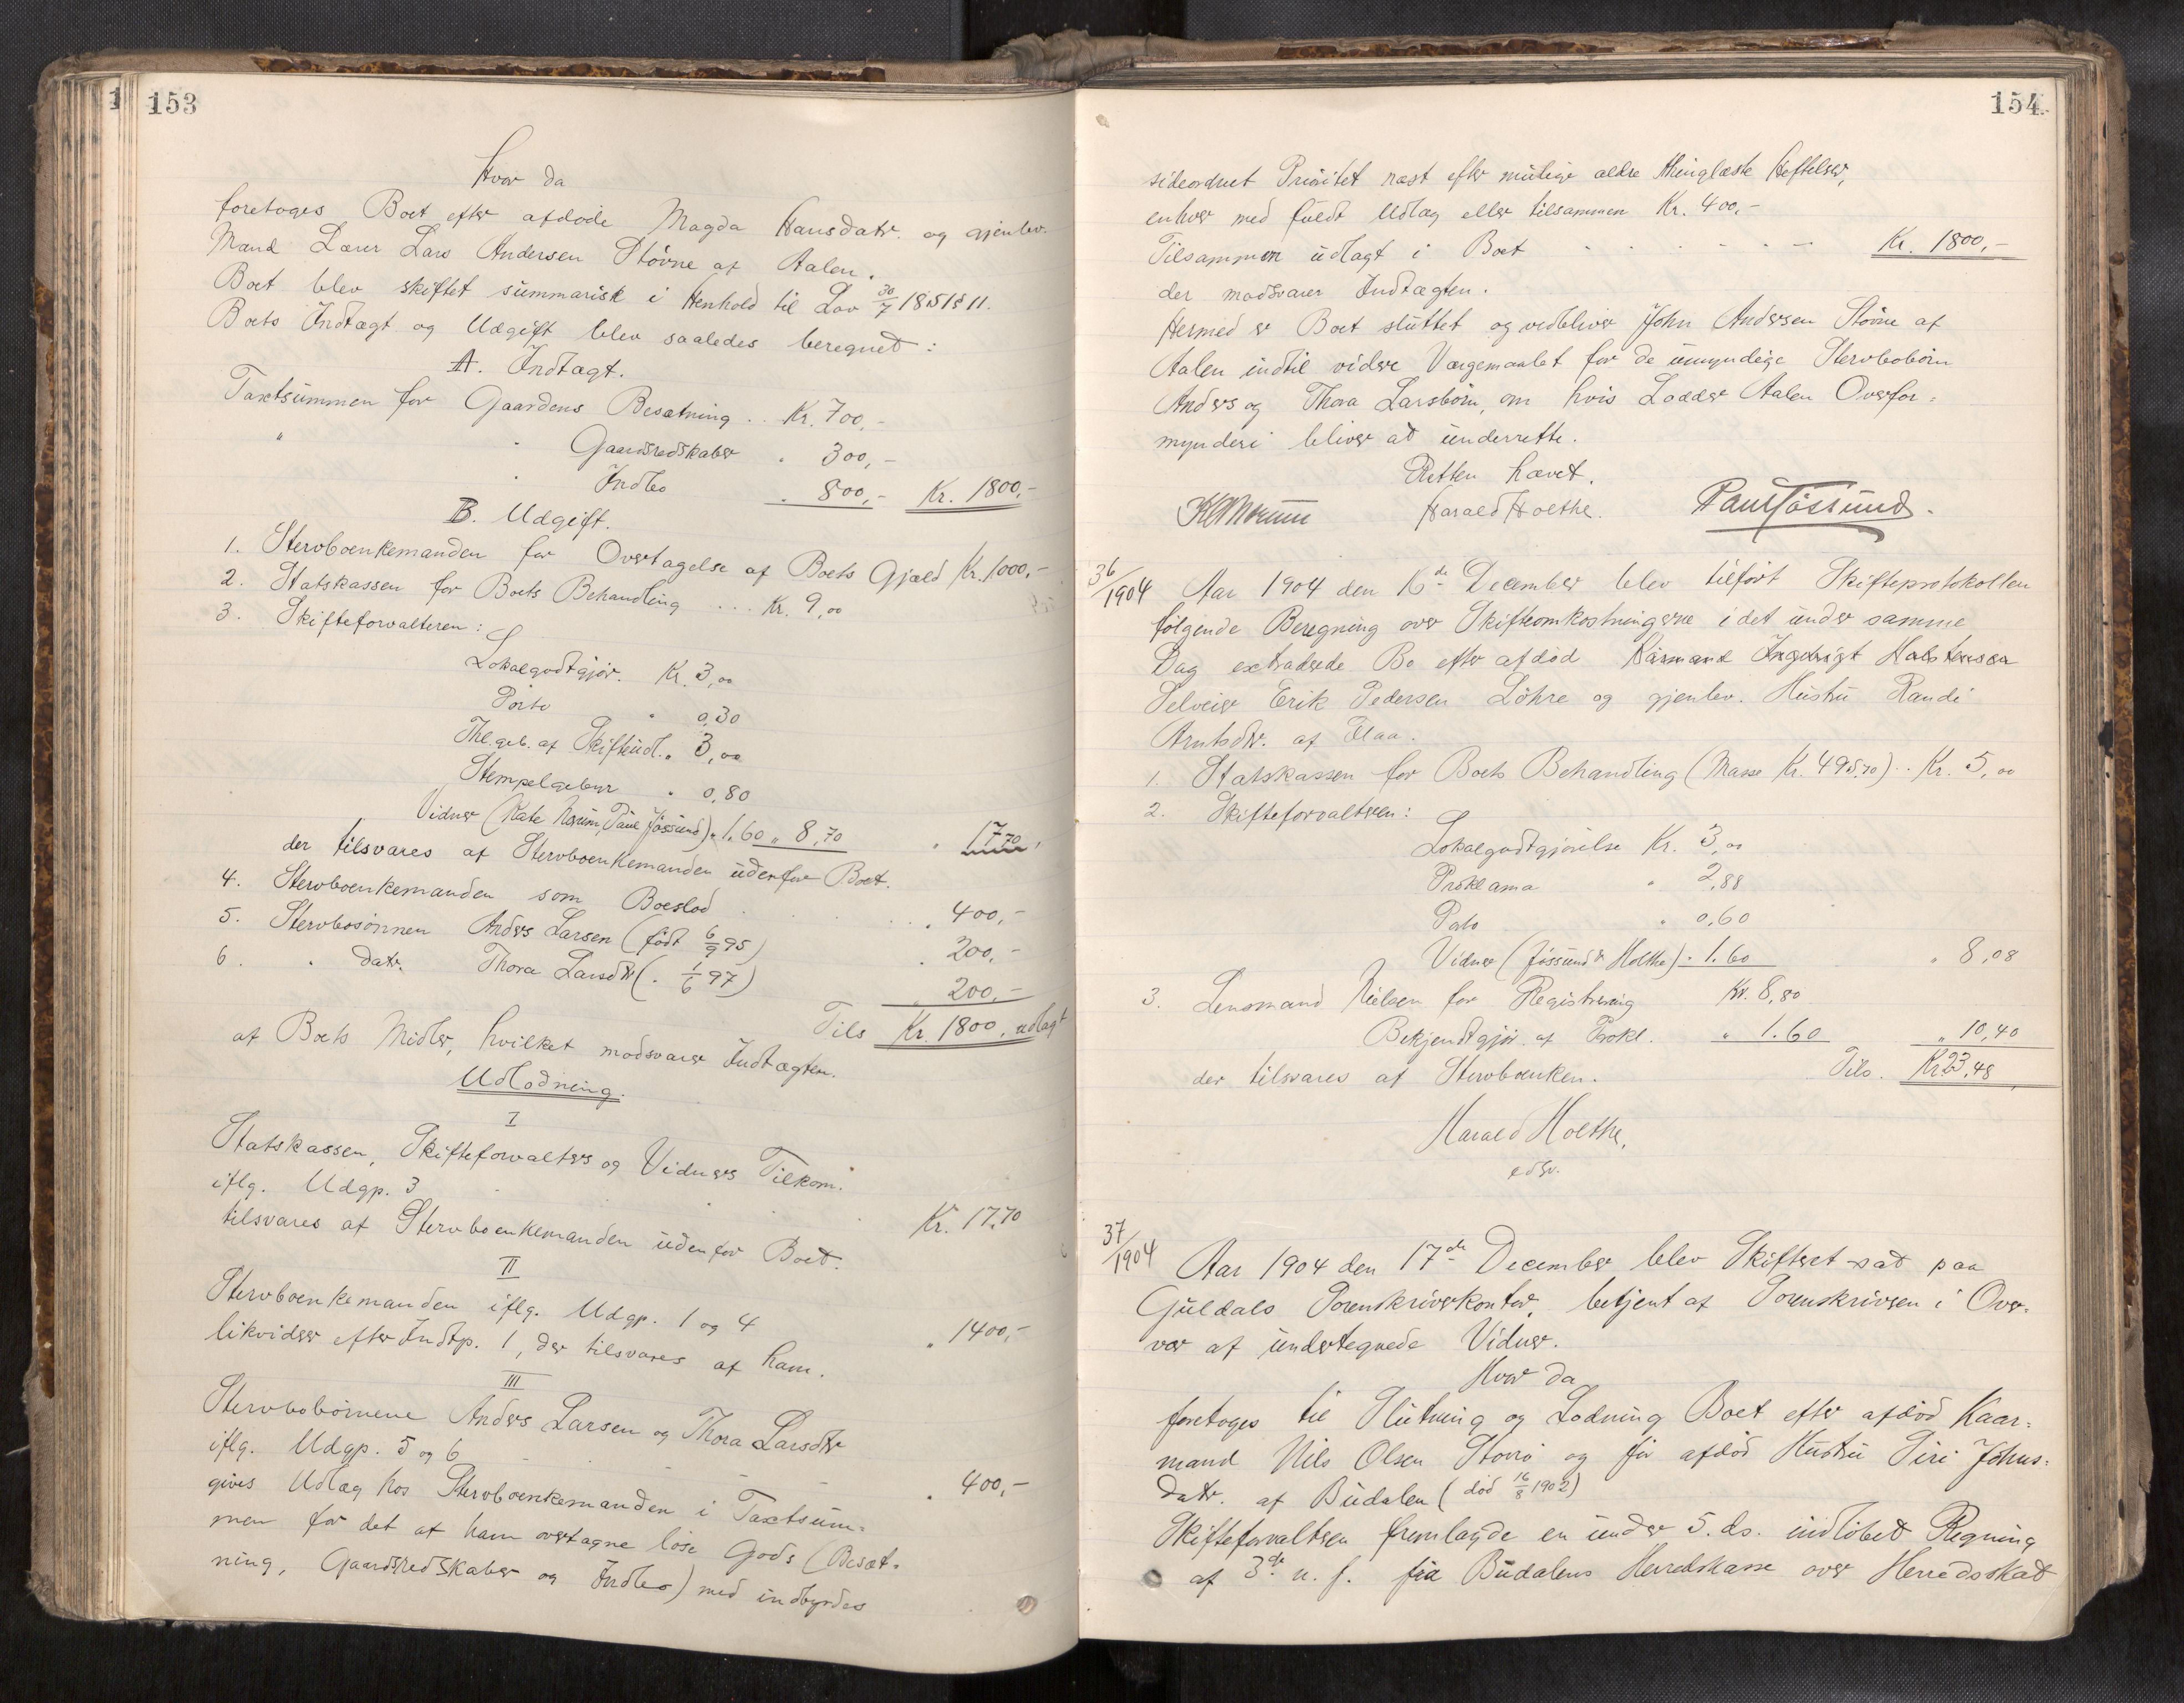 153
Hvor da
foretoges Boet efter afdøde Magda Hansdatr. og gjenlev.
Mand Lærer Lars Andersen Støvne af Aalen.
Boet blev skiftet summarisk i Henhold til Lov 30/7 1851 § 11.
Boets Indtægt og Udgift blev saaledes beregnet:
A. Indtægt.
Taxtsummen for Gaardens Besætning .. Kr. 700,-
" " Gaardsredskaber " 300,-
" Indbo " 800,- Kr. 1800,-
B. Udgift.
1. Stervboenkemanden for Overtagelse af Boets Gjæld Kr. 1000,-
2. Statskassen for Boets Behandling ... Kr. 9,00
3. Skifteforvalteren:
Lokalgodtgjør. Kr. 3,00
Porto " 0,30
Thl.geb. af Skifteudl. " 3,00
Stempelgebyr " 0,80
Vidner (Kate Norum, Paul Jøssund) " 1.60 " 8,70 " 17,70
der tilsvares af Stervboenkemanden udenfor Boet.
4. Stervboenkemanden som Boeslod . . . . 400,-
5. Stervbosønnen Anders Larsen (født 6/9 95) " 200,-
6. " datr. Thora Larsdtr (" 1/6 97) " 200,-
Tils Kr. 1800, udlagt
af Boets Midler, hvilket modsvarer Indtægten.
Udlodning.
I
Statskassen, Skifteforvalters og Vidners Tilkom.
iflg. Udgp. 3 . . . Kr. 17,70
tilsvares af Stervboenkemanden udenfor Boet.
II
Stervboenkemanden iflg. Udgp. 1 og 4 " 1400,-
likvider efter Indtp. 1, der tilsvares af ham.
III
Stervbobørnene Anders Larsen og Thora Larsdtr
iflg. Udgp. 5 og 6 - - - " 400,-
gives Udlæg hos Stervboenkemanden i Taxtsum-
men for det af ham overtagne løse Gods (Besæt-
ning, Gaardsredskaber og Indbo) med indbyrdes
154
sideordnet Prioritet næst efter mulige ældre thinglæste Heftelser,
enhver med fuldt Udlæg eller tilsammen Kr. 400,-
Tilsammen udlagt i Boet . . . . . . Kr. 1800,-
der modsvarer Indtægten.
Hermed er Boet sluttet og vedbliver John Andersen Støvne af
Aalen indtil videre Værgemaalet for de umyndige Stervbobørn
Anders og Thora Larsbørn, om hvis Lodder Aalen Overfor-
mynderi bliver at underrette.
Retten hævet.
Harald Holthe. Paul Jøssund.
36/1904 Aar 1904 den 16de December blev tilført Skifteprotokollen
følgende Beregning over Skifteomkostningerne i det under samme
Dag extraderede Bo efter afdød Kaarmand Ingebrigt Halstensen
Selveier Erik Pedersen Løhre og gjenlev. Hustru Randi
Arntsdtr. af Flaa.
1. Statskassen for Boets Behandling (Masse Kr. 495,70) .. Kr. 5,00
2. Skifteforvalteren:
Lokalgodtgjørelse Kr. 3,00
Proklama " 2,88
Porto " 0,60
Vidner (Jøssund & Holthe) " 1.60 " 8,08
3. Lensmand Nielsen for Registrering Kr. 8,80
Bekjendtgjør. af Prokl. " 1.60 " 10,40
der tilsvares af Stervboenken. Tils. Kr. 23,48
Harald Holthe,
edsv.
37/1904 Aar 1904 den 17de December blev Skifteret sat paa
Guldals Sorenskriverkontor, betjent af Sorenskriveren i Over-
vær af undertegnede Vidner.
Hvor da
foretoges til Slutning og Lodning Boet efter afdød Kaar-
mand Nils Olsen Storrø og før afdød Hustru Siri Johns-
datr. af Budalen (død 16/8 1902)
Skifteforvalteren fremlagde en under 5. ds. indløbet Regning
af 3die n. f. fra Budalens Herredskasse over Herredsskat